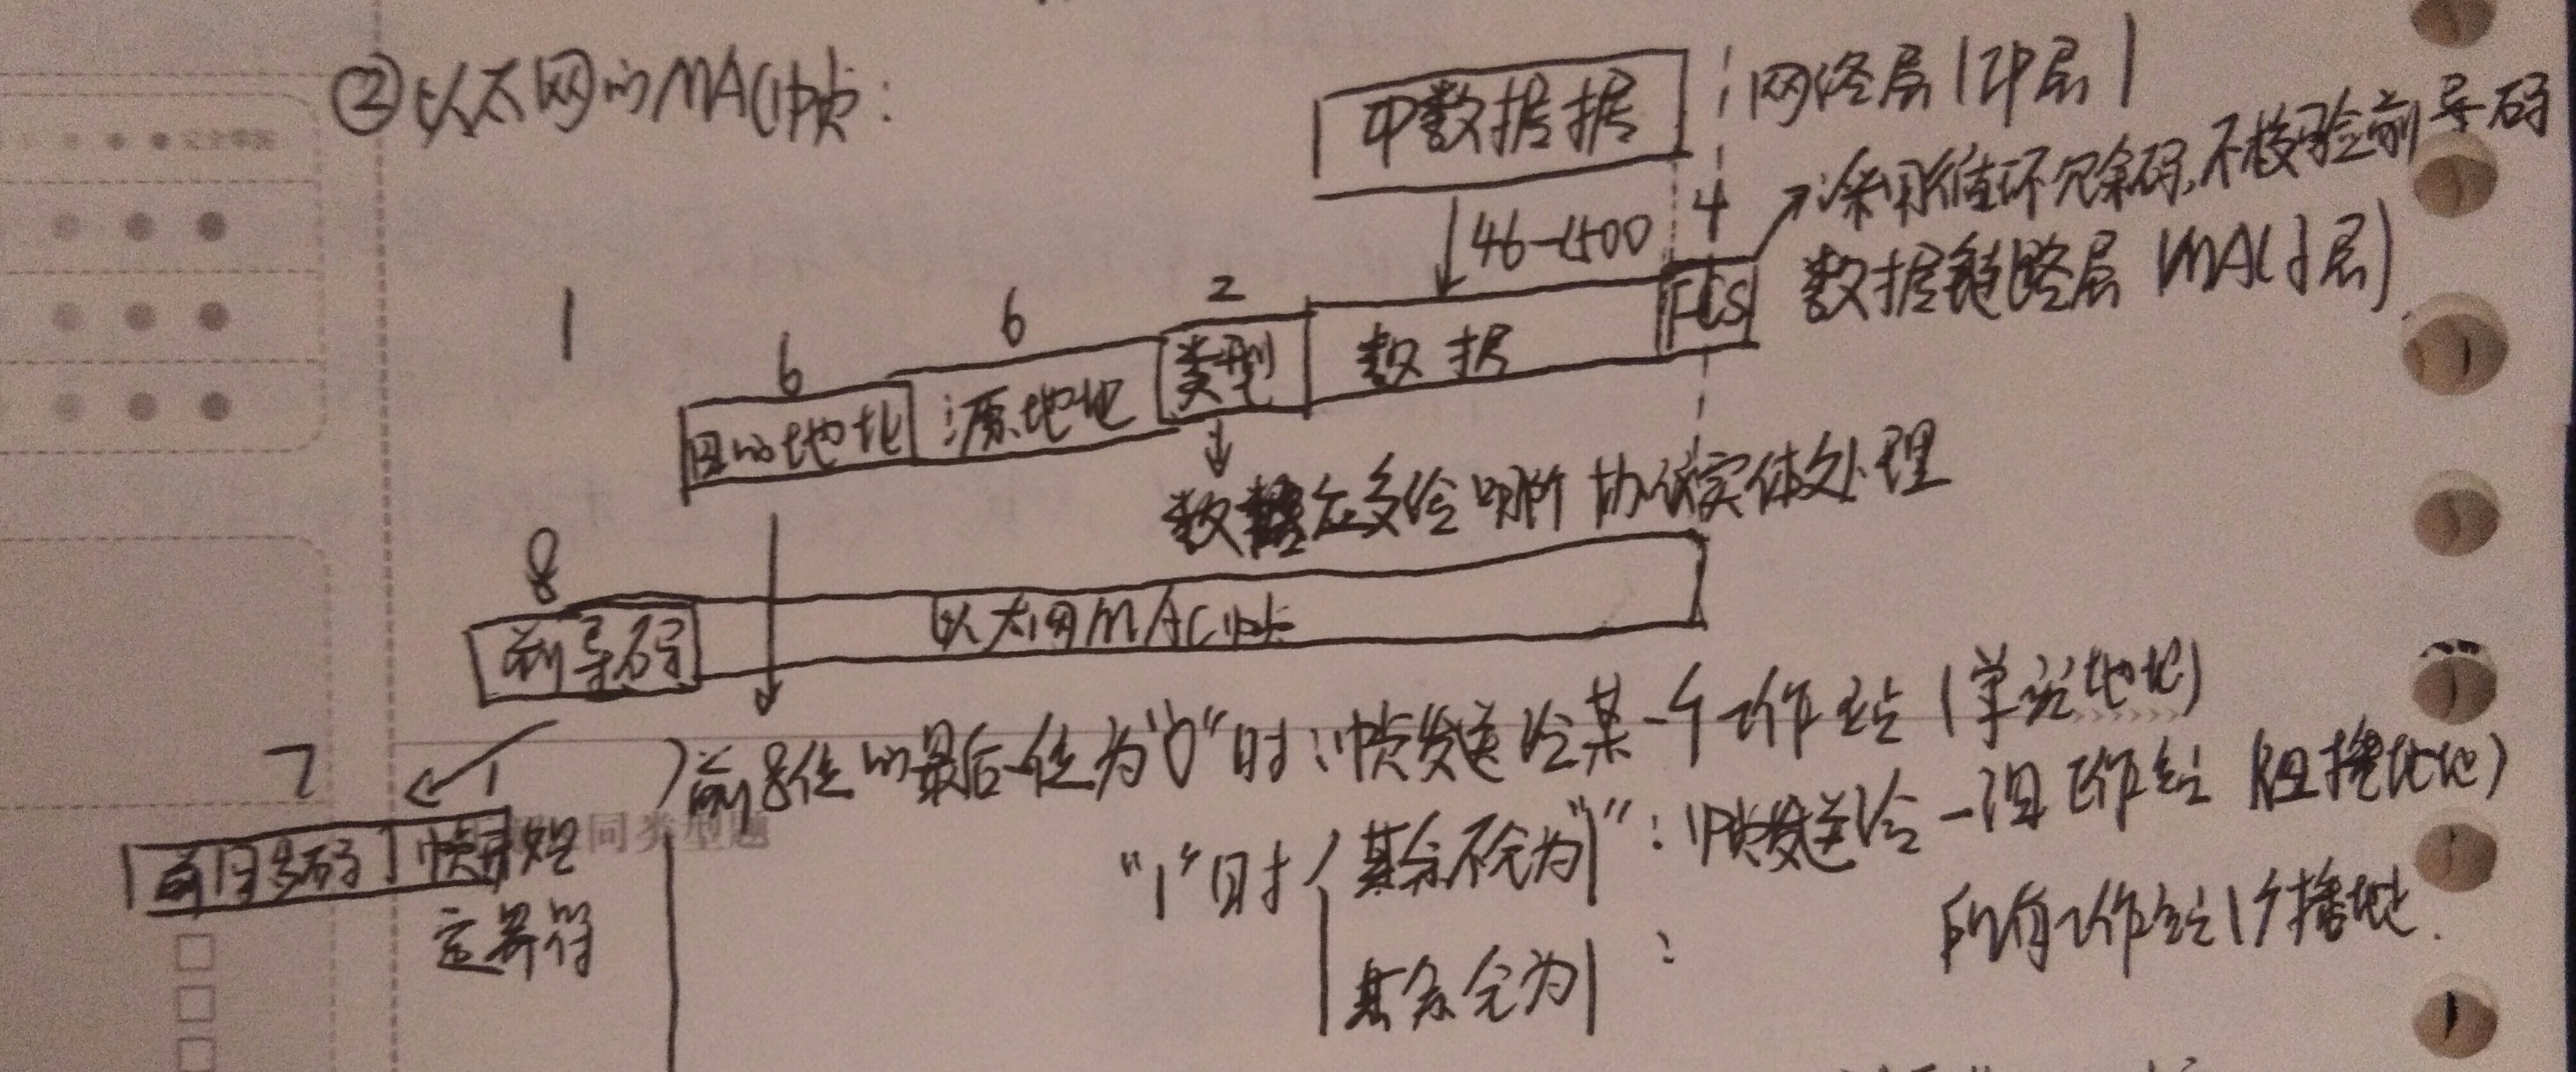 ②以太网的MAC帧：
IP数据报 网络层(IP层)
46-1500 4 采用循环冗余码,不检验前导码
1 6 6 2 数据链路层 MAC子层)
目的地址 源地址 类型 数据 FCS
数据应交给哪个协议实体处理
8
前导码 以太网MAC帧
前8位的最后一位为"0"时：帧发送给某一个工作站(单站地址)
7 1
"1"时 其余不全为"1"：帧发送给一组工作站 (组播地址)
前同步码 帧开始
定界符 同类型题
其余全为1 : 所有工作站(广播地址.